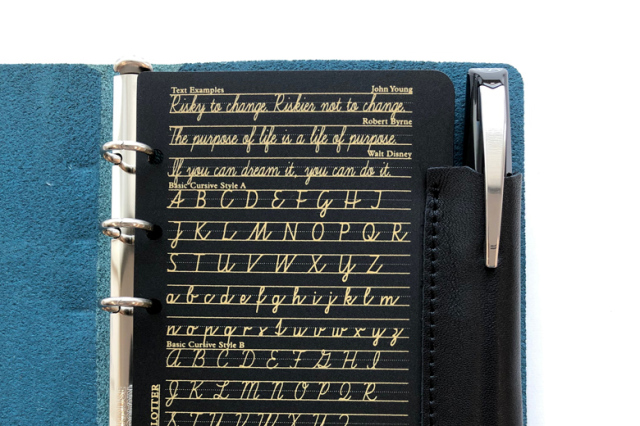 Text Examples John Young
Risky to change. Riskier not to change.
Robert Byrne
The purpose of life is a life of purpose.
Walt Disney
If you can dream it, you can do it.
Basic Cursive Style A
A B C D E F G H I
J K L M N O P Q R
S T U V W X Y Z
a b c d e f g h i j k l m
n o p q r s t u v w x y z
Basic Cursive Style B
A B C D E F G H I
J K L M N O P Q R
S T U V W X Y Z